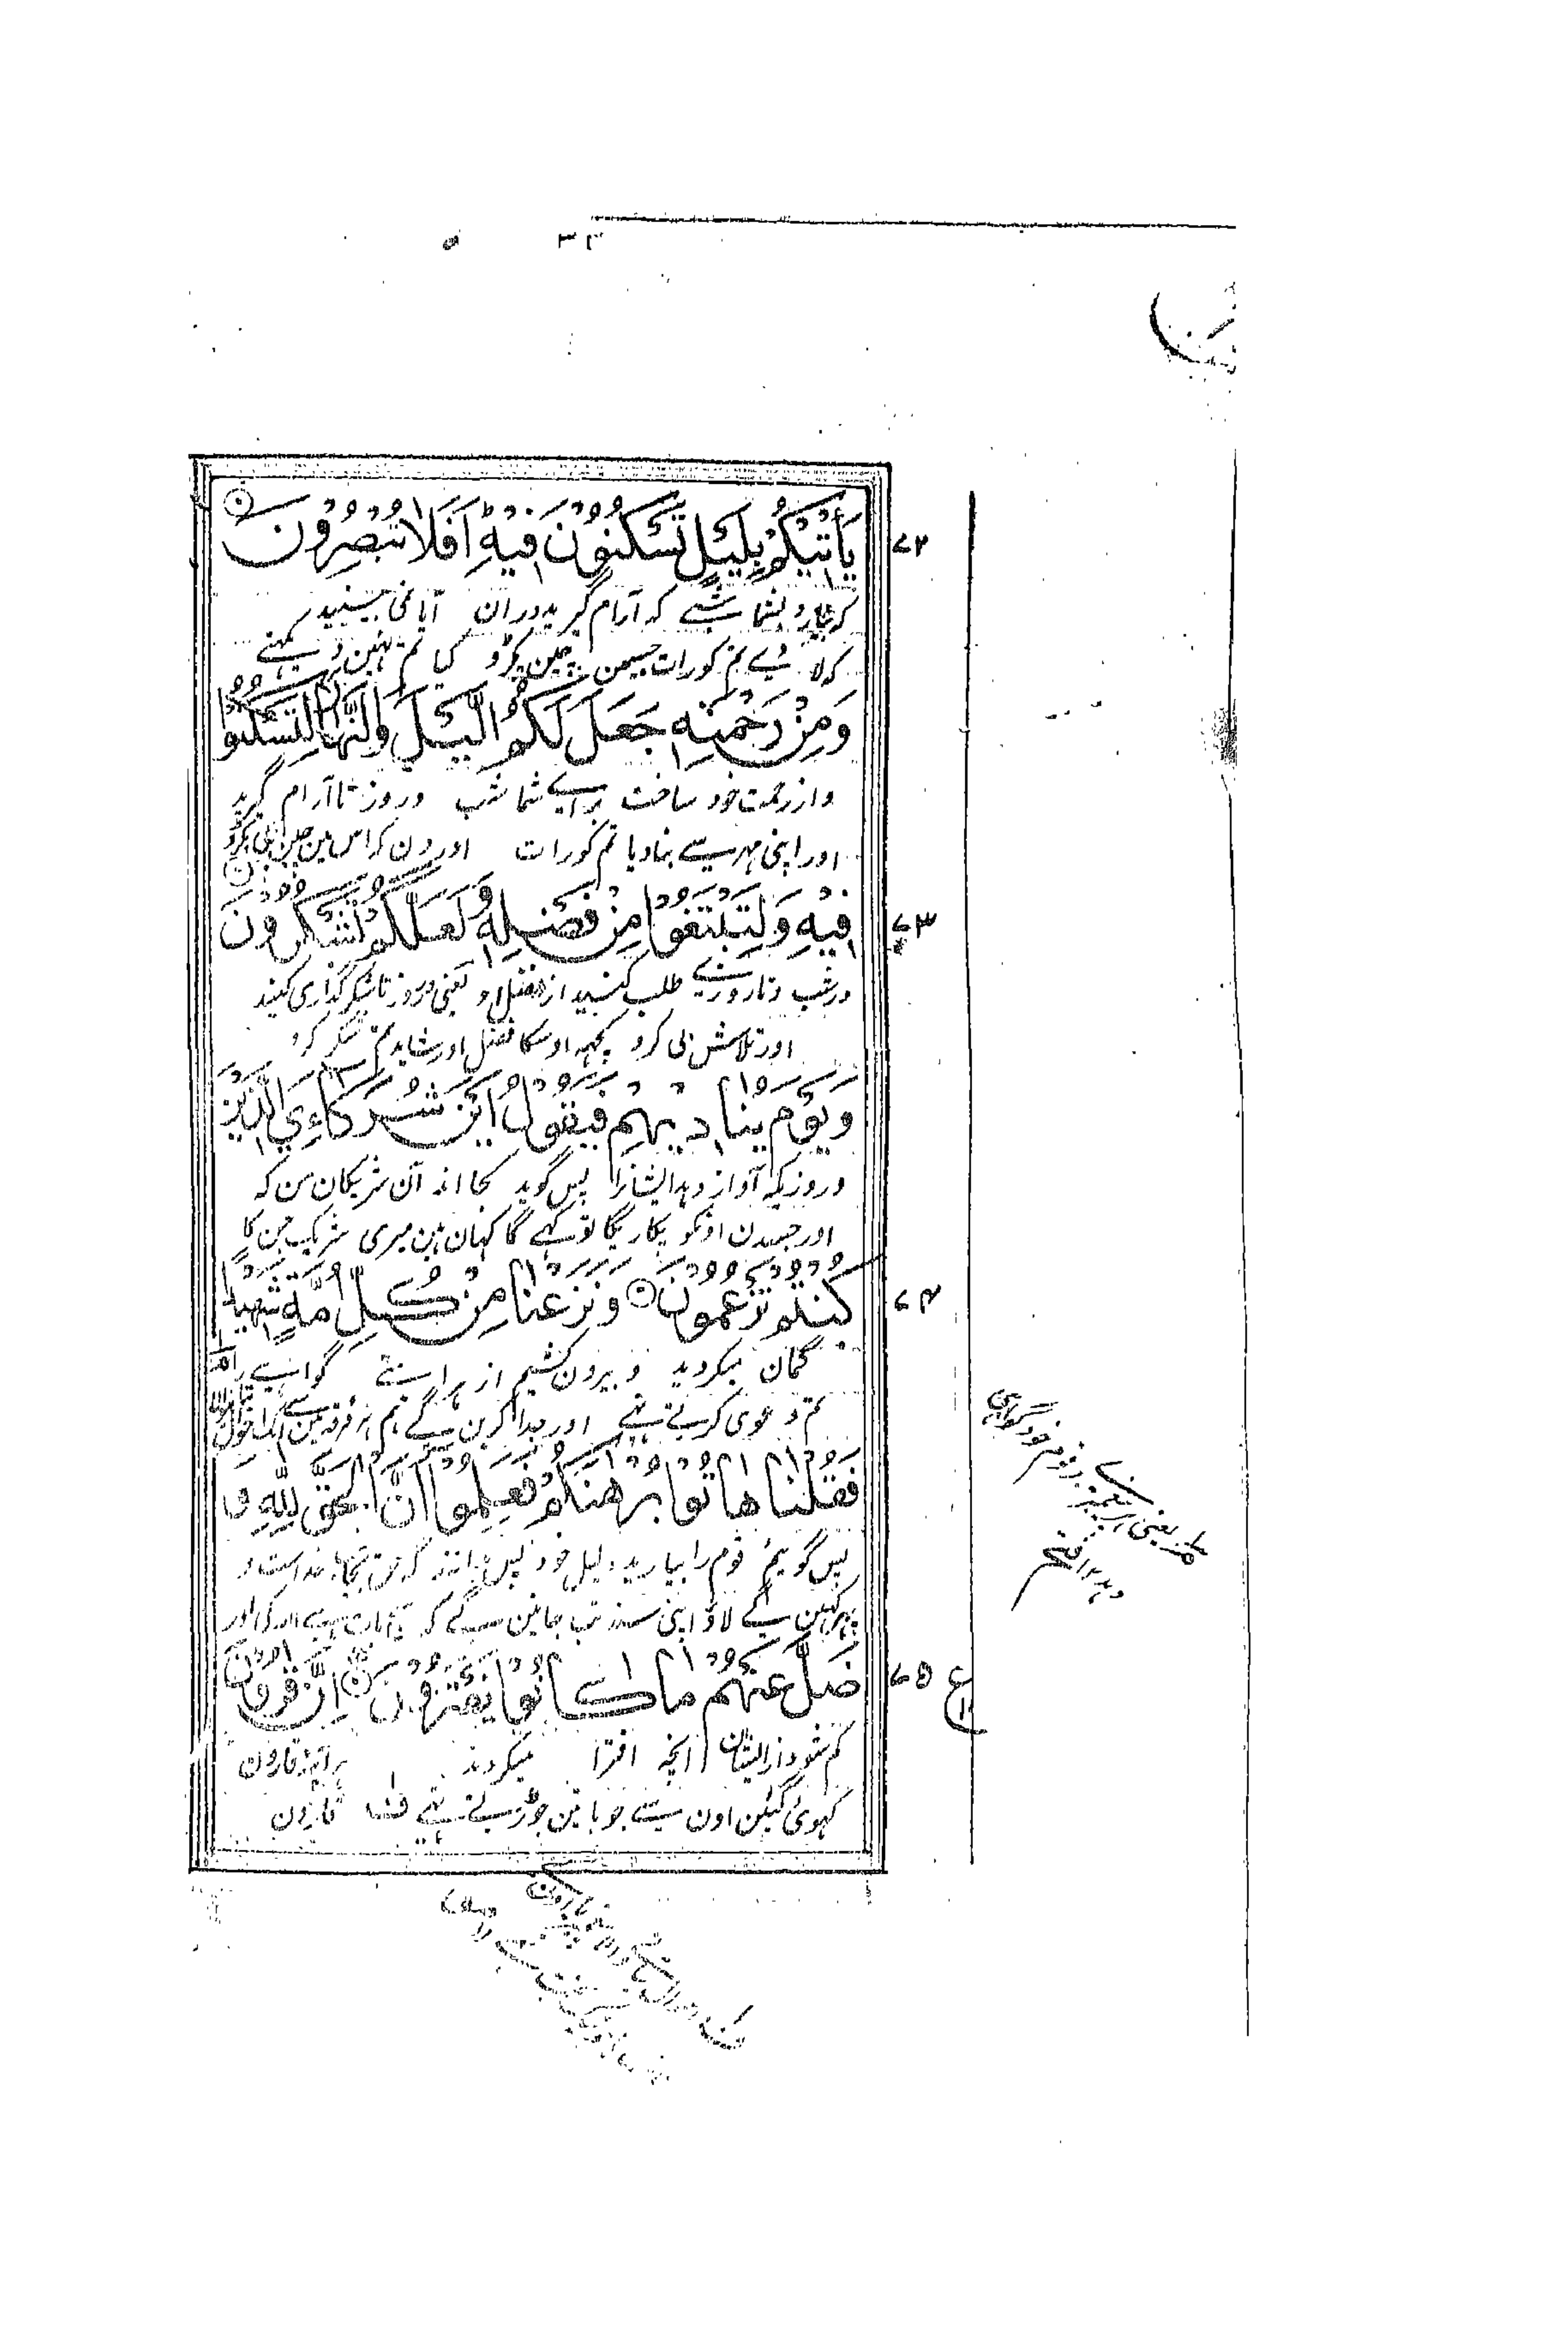 يَأْتِيْكُمْ بِلَيْلٍ تَسْكُنُوْنَ فِيْهِ ؕ اَفَلَا تُبْصِرُوْنَ
۷۲
کہ بیارد بشما شبے کہ آرام گیرید دران آیا نمی بینید
کہ لا دے تم کو رات جسمین چین پکڑو کیا تم نہین دیکہتے
وَمِنْ رَّحْمَتِهٖ جَعَلَ لَكُمُ الَّيْلَ وَالنَّهَارَ لِتَسْكُنُوْا
و از رحمت خود ساخت براے شما شب و روز تا آرام گیرید
اور اپنی مہر سے بنا دیا تم کو رات اور دن کہ اس مین چین بی پکڑو
فِيْهِ وَلِتَبْتَغُوْا مِنْ فَضْلِهٖ وَلَعَلَّكُمْ تَشْكُرُوْنَ
۷۳
در شب و تا روزی طلب کنید از فضل او یعنی در روز تا شکر گذاری کنید
اور تلاش بی کرو کچہہ اوسکا فضل اور شاید تم شکر کرو
وَيَوْمَ يُنَادِيْهِمْ فَيَقُوْلُ اَيْنَ شُرَكَآءِيَ الَّذِيْنَ
و روزیکہ آواز دہد ایشانرا پس گوید کجا اند آن شریکان من کہ
اور جسدن اونکو پکاریگا تو کہے گا کہان ہین میری شریک جن کا
كُنْتُمْ تَزْعُمُوْنَ وَنَزَعْنَا مِنْ كُلِّ اُمَّةٍ شَهِيْدًا
۷۴
گمان میکردید و بیرون کشیم از ہر امتے گواہے را
تم دعوی کرتے تہے اور جدا کرین گے ہم ہر فرقہ مین سے ایک احوال
فَقُلْنَا هَاتُوْا بُرْهَانَكُمْ فَعَلِمُوْا اَنَّ الْحَقَّ لِلّٰهِ وَ
پس گوئیم قوم را بیارید دلیل خود پس بدانند کہ حق بجانب خداست و
پہر کہین گے لاؤ اپنی سند تب جانین گے کہ سچ بات ہے اللہ کی اور
ضَلَّ عَنْهُمْ مَّا كَانُوْا يَفْتَرُوْنَ اِنَّ قَارُوْنَ
۷۵ ع
گم شود از ایشان آنچہ افترا میکردند ہر آئینہ قارون
کہوئی گئین اون سے جو باتین جوڑتے تہے ف قارون